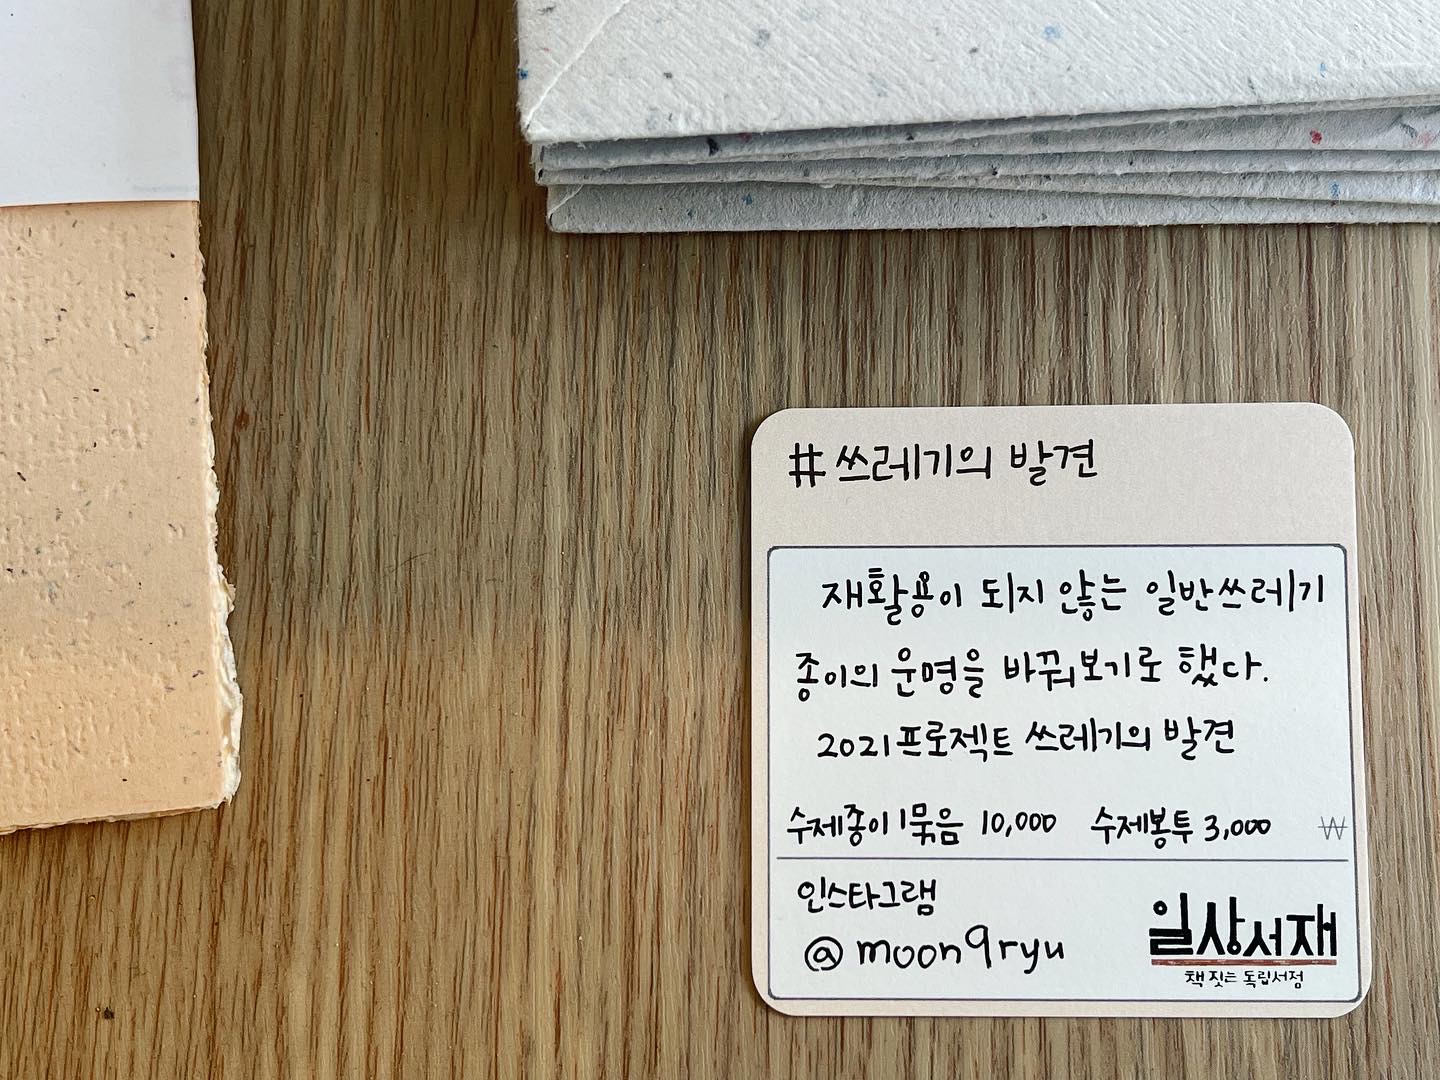 #쓰레기의 발견
재활용이 되지 않는 일반쓰레기
종이의 운명을 바꿔보기로 했다.
2021프로젝트 쓰레기의 발견
수제종이 1묶음 10,000 수제봉투 3,000 ₩
인스타그램
@moon9ryu
일상서재
책 짓는 독립서점